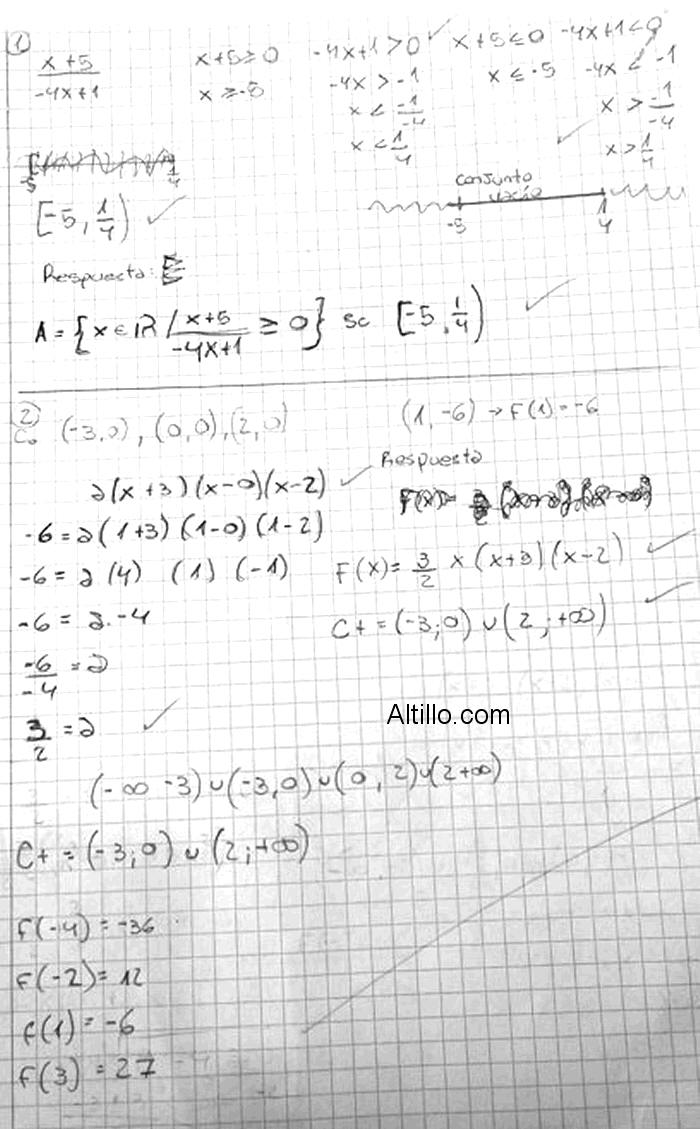 1
x+5 / -4x+1
x+5≥0
x≥-5
-4x+1>0 ✓
-4x>-1
x< -1/-4
x< 1/4
x+5≤0 -4x+1<0
x≤-5 -4x<-1
x> -1/-4
x> 1/4
-5 1/4
[-5, 1/4) ✓
conjunto
vacío
-5 1/4
Respuesta:
A = {x∈IR / x+5 / -4x+1 ≥ 0} [-5, 1/4) ✓
2
C0 (-3,0), (0,0), (2,0)
(1,-6) → f(1)=-6
a(x+3)(x-0)(x-2) ✓ Respuesta
-6=a(1+3)(1-0)(1-2)
-6=a(4) (1) (-1)
-6= a.-4
-6/-4 =a
3/2 =a ✓
F(x)=
F(x)= 3/2 x(x+3)(x-2) ✓
C+=(-3;0)∪(2;+∞) ✓
Altillo.com
(-∞ -3)∪(-3,0)∪(0, 2)∪(2+∞)
C+ =(-3;0) ∪ (2;+∞)
f(-4)=-36
f(-2)=12
f(1)=-6
f(3)=27